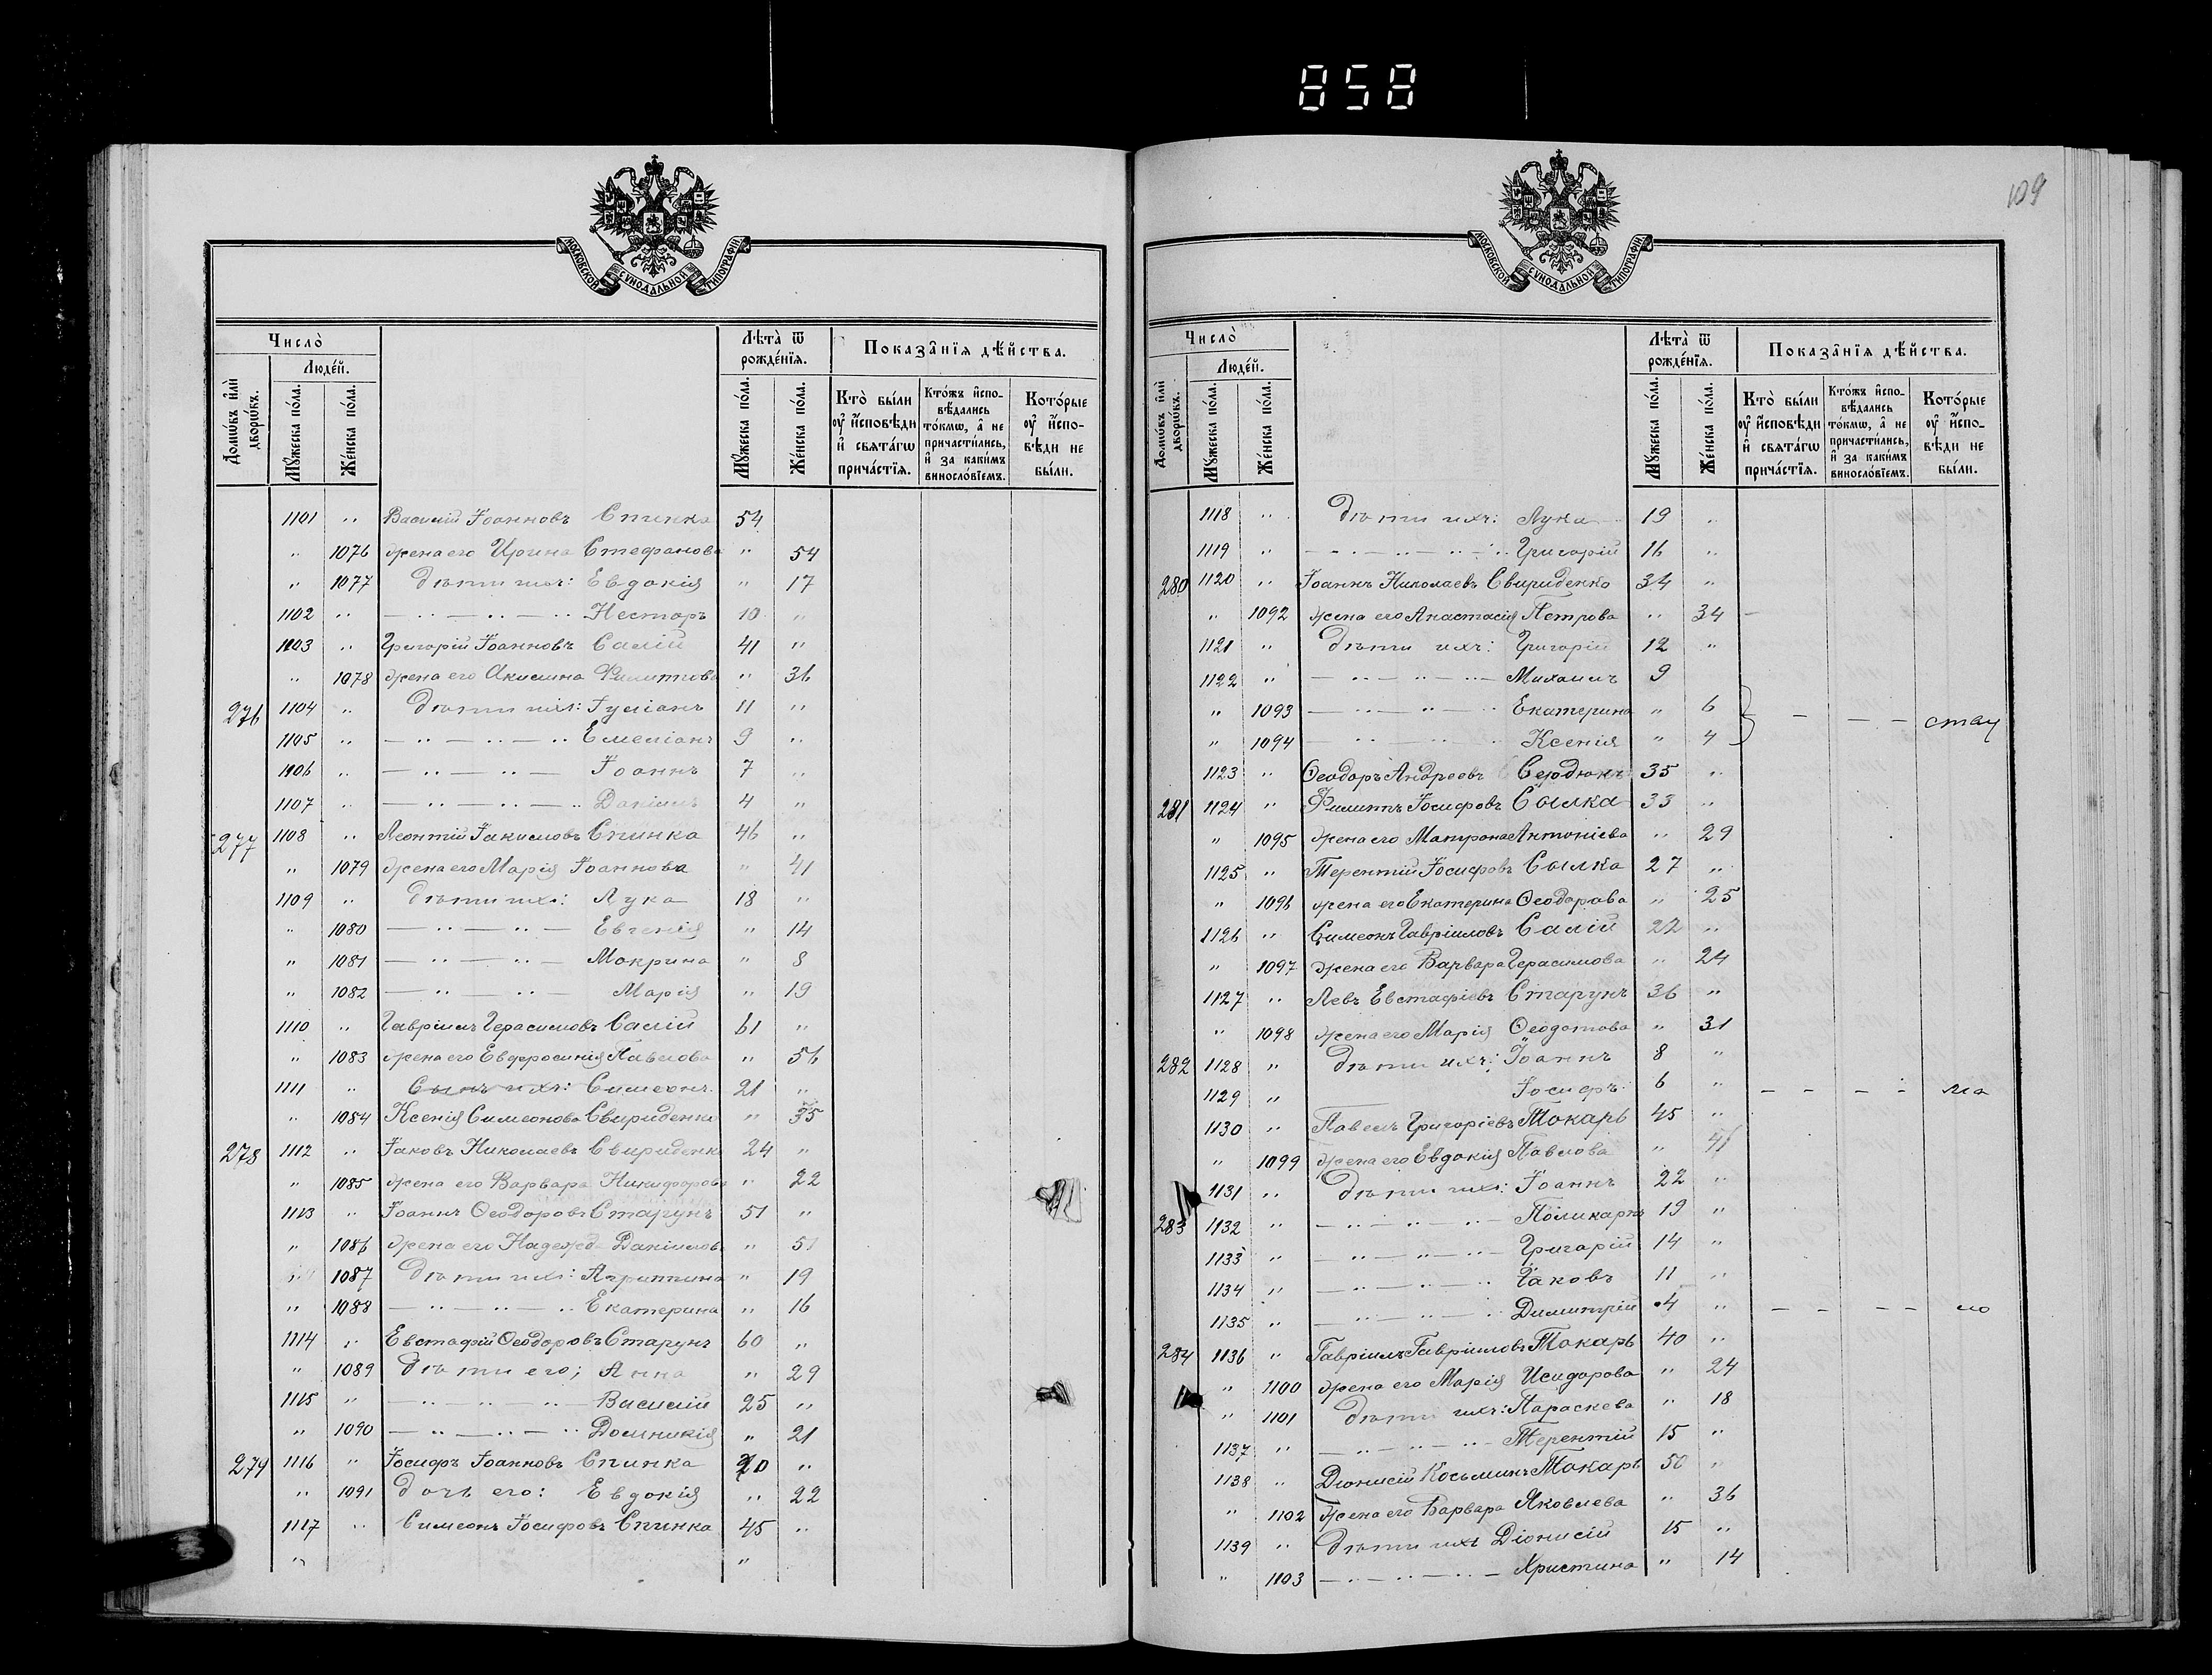 858
109
МОСКОВСКОЙ СѴНОДАЛЬНОЙ ТИПОГРАФІИ
Число̀ Лѣта̀ ѿ рожде́нїѧ. Показа̂нїѧ дѣ́йства.
Люде́й.
Домѡ́въ и҆лѝ дворѡ́въ. Мꙋ́жеска по́ла. Же́нска по́ла. Мꙋ́жеска по́ла. Же́нска по́ла. Кто̀ бы́ли ᲂу҆ и҆́сповѣди и҆ свѧта́гѡ прича́стїѧ. Кто́жъ и҆спо-вѣ́дались то́кмѡ, а҆ не причасти́лись, и҆ за каки́мъ виносло́вїемъ. Кото́рые ᲂу҆ и҆́спо-вѣди не бы́ли.
1101 " Василій Іоанновъ Спинка 54
" 1076 жена его Ирина Стефанова " 54
" 1077 Дѣти ихъ: Евдокія " 17
1102 " Несторъ 10 "
1103 " Григорій Іоанновъ Салій 41 "
" 1078 жена его Акилина Филиппова " 36
276 1104 " Дѣти ихъ: Іуліанъ 11 "
1105 " Емеліанъ 9 "
1106 " Іоаннъ 7 "
1107 " Даніилъ 4 "
277 1108 " Леонтій Іакимовъ Спинка 46 "
" 1079 жена его Марія Іоаннова " 41
1109 " Дѣти ихъ: Лука 18 "
" 1080 Евгенія " 14
" 1081 Макрина " 8
" 1082 Марія " 19
1110 " Гавріилъ Герасимовъ Салій 61 "
" 1083 жена его Евфросинія Павлова " 56
1111 " Сынъ ихъ: Симеонъ 21 "
" 1084 Ксенія Симеонова Свириденко " 35
278 1112 " Іаковъ Николаевъ Свириденк 24 "
" 1085 жена его Варвара Никифорова " 22
1113 " Іоаннъ Ѳеодоровъ Старунъ 51 "
" 1086 жена его Надежд Даніилов " 51
" 1087 Дѣти ихъ: Агриппина " 19
" 1088 Екатерина " 16
1114 " Евстафій Ѳеодоровъ Старунъ 60 "
" 1089 Дѣти его; Анна " 29
1115 " Василій 25 "
" 1090 Домникія " 21
279 1116 " Іосифъ Іоанновъ Спинка 20 "
" 1091 Дочь его: Евдокія " 22
1117 " Симеонъ Іосифовъ Спинка 45 "
" "
Число̀ Лѣта̀ ѿ рожде́нїѧ. Показа̂нїѧ дѣ́йства.
Люде́й.
Домѡ́въ и҆лѝ дворѡ́въ. Мꙋ́жеска по́ла. Же́нска по́ла. Мꙋ́жеска по́ла. Же́нска по́ла. Кто̀ бы́ли ᲂу҆ и҆́сповѣди и҆ свѧта́гѡ прича́стїѧ. Кто́жъ и҆спо-вѣ́дались то́кмѡ, а҆ не причасти́лись, и҆ за каки́мъ виносло́вїемъ. Кото́рые ᲂу҆ и҆́спо-вѣди не бы́ли.
1118 " Дѣти ихъ: Лука 19 "
1119 " Григорій 16 "
280 1120 " Іоаннъ Николаевъ Свириденко 34 "
" 1092 жена его Анастасія Петрова " 34
1121 " Дѣти ихъ: Григорій 12 "
1122 " Михаилъ 9
" 1093 Екатерина " 6
" 1094 Ксенія " 4
1123 " Ѳеодоръ Андреевъ Сердюкъ 35 "
281 1124 " Филиппъ Іосифовъ Сылка 33 "
" 1095 жена его Матрона Антоніева " 29
1125 " Терентій Іосифовъ Сылка 27 "
" 1096 жена его Екатерина Ѳеодорова " 25
1126 " Симеонъ Гавріиловъ Салій 22 "
" 1097 жена его Варвара Герасимова " 24
1127 " Левъ Евстафіевъ Старунъ 36 "
" 1098 жена его Марія Ѳеодотова " 31
282 1128 " Дѣти ихъ: Іоаннъ 8 "
1129 " Іосифъ 6 " ма
1130 " Павелъ Григоріевъ Токарь 45 "
" 1099 жена его Евдокія Павлова " 41
1131 " Дѣти ихъ: Іоаннъ 22 "
283 1132 " Поликарпъ 19 "
1133 " Григорій 14 "
1134 " Іаковъ 11 "
1135 " Димитрій 4 "
284 1136 " Гавріилъ Гавріиловъ Токарь 40 "
" 1100 жена его Марія Исидорова " 24
" 1101 Дѣти ихъ: Параскева " 18
1137 " Терентій 15 "
1138 " Діонисій Косьминъ Токарь 50 "
" 1102 жена его Варвара Яковлева " 36
1139 " Дѣти ихъ Діонисій 15 "
" 1103 Христина " 14